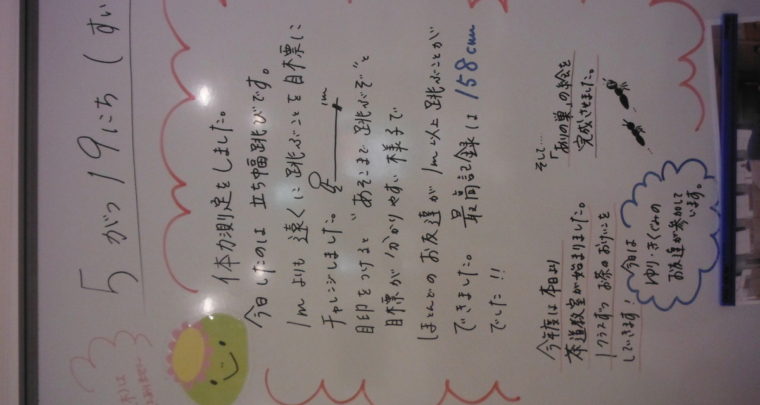 5がつ19にち(すい
体力測定をしました。
今日したのは 立ち幅跳びです。
1mよりも 遠くに跳ぶことを目標に
チャレンジしました。
1m
目印をつけると"あそこまで跳ぶぞ"と
目標が分かりやすい様子で
ほとんどのお友達が 1m以上跳ぶことが
できました。 最高記録は 158cm
でした!!
そして…
「ありの巣」の絵を
完成させました。
今年度は本日より
茶道教室が始まりました。
1クラスずつ お茶のおけいこを
していきます!
今日は
ゆり・きくぐみの
お友達が参加して
います。